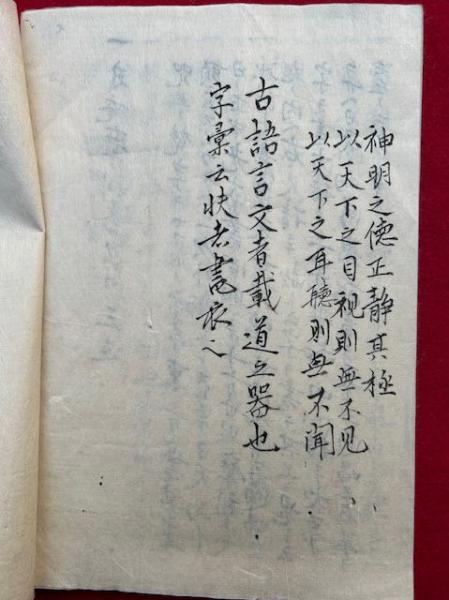 神明之德正靜其極
以天下之目視則無不见
以天下之耳聽則無不聞
古語言文者載道之器也
字彙云帙者書衣也